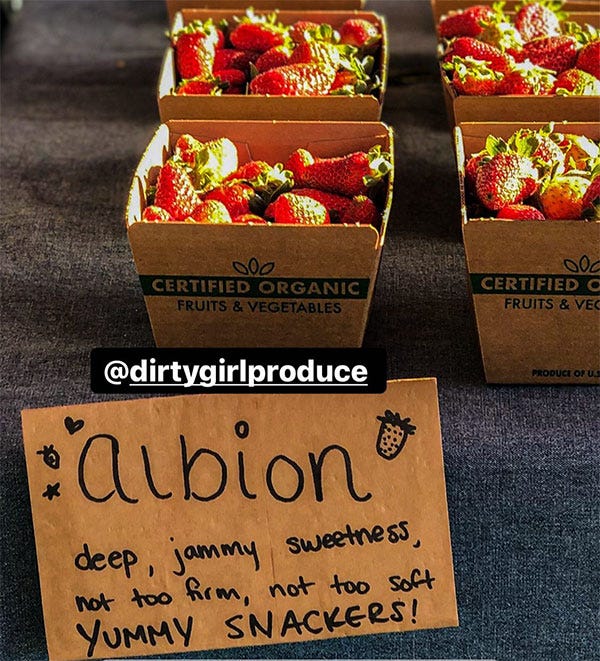 CERTIFIED ORGANIC
FRUITS & VEGETABLES
CERTIFIED
FRUITS &
PRODUCE OF
@dirtygirlproduce
albion
deep, jammy sweetness,
not too firm, not too soft
YUMMY SNACKERS!